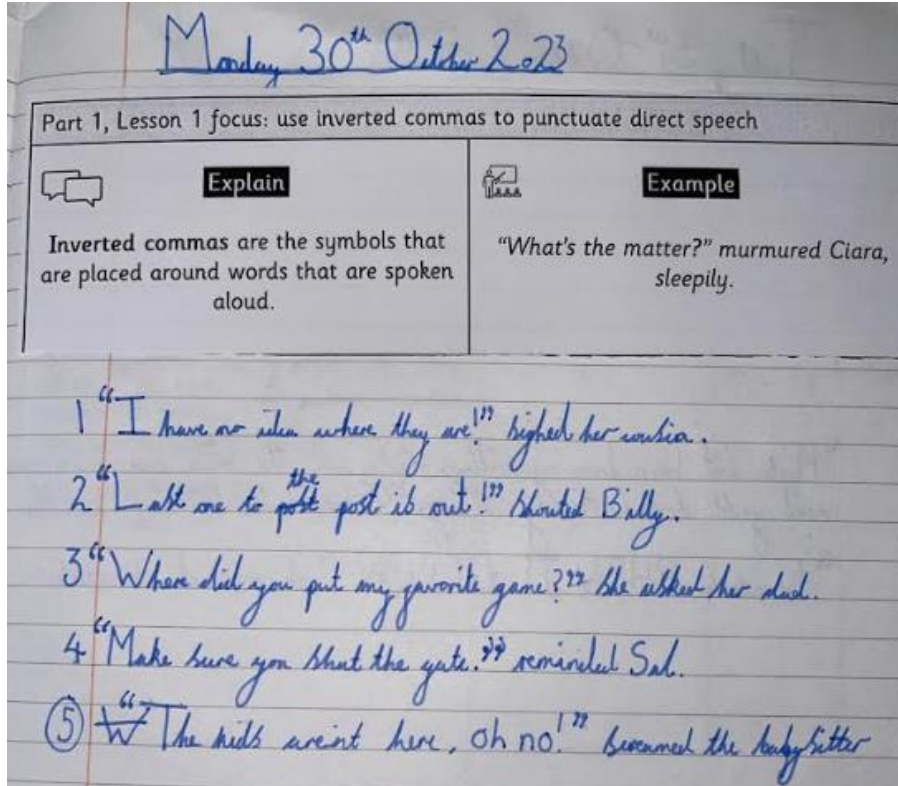 Monday 30th October 2023
Part 1, Lesson 1 focus: use inverted commas to punctuate direct speech
Explain
Inverted commas are the symbols that
are placed around words that are spoken
aloud.
Example
“What's the matter?” murmured Ciara,
sleepily.
1 “I have no idea where they are!” sighed her cousin.
2 “Last one to the post is out!” shouted Billy.
3 “Where did you put my favorite game?” she asked her dad.
4 “Make sure you shut the gate.” reminded Sal.
5 “The kids areint here, oh no!” screamed the babysitter